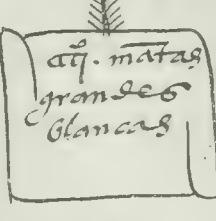 mãtas
grandes
blancas